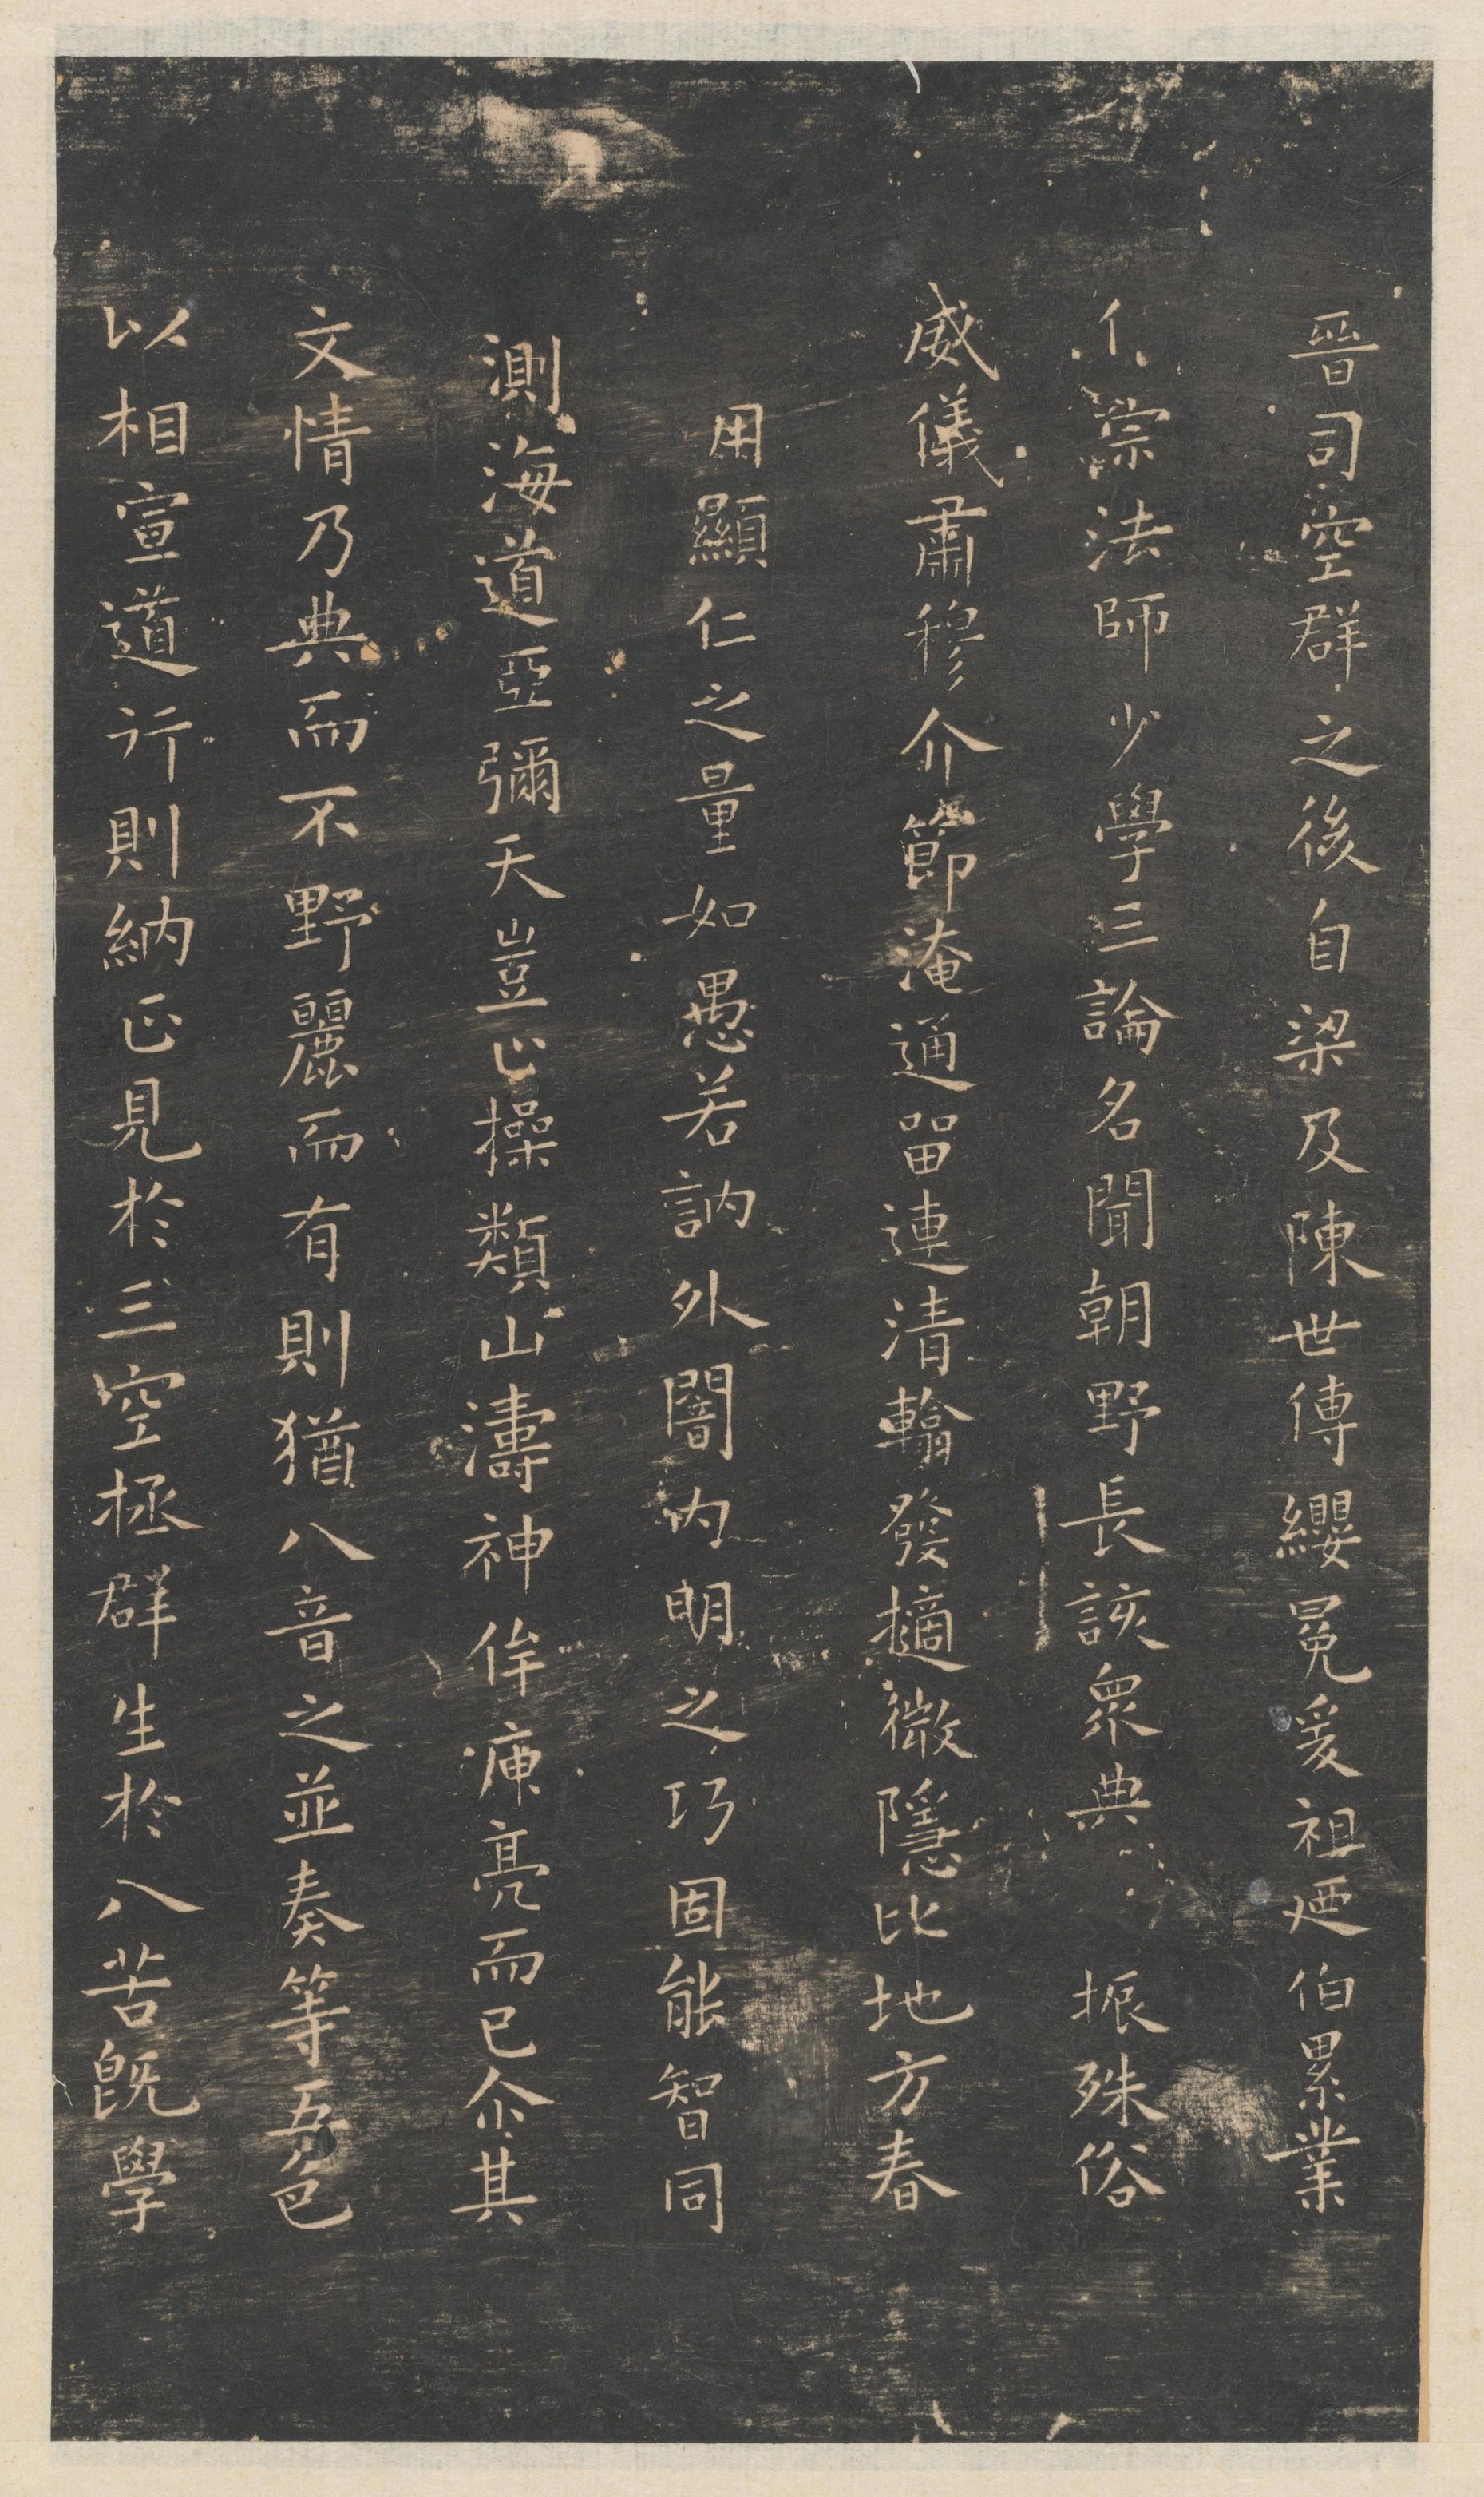 晉司空群之後自梁及陳世傳纓冕爰祖迺伯累業
崇法師少學三論名聞朝野長該衆典振殊俗
威儀肅穆介節淹通留連清翰發擿微隱比地方春
用顯仁之量如愚若訥外闇内明之巧固能智同
測海道亞彌天豈止操類山濤神侔庾亮而已介其
文情乃典而不野麗而有則猶八音之並奏等五色
以相宣道行則納正見於三空拯群生於八苦旣學